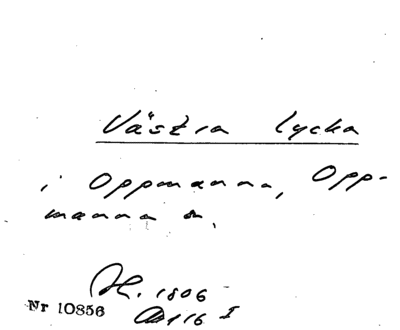 Västra Lycka
i Oppmanna, Opp-
manna sn.
H. 1806
Nr 10856
116 I